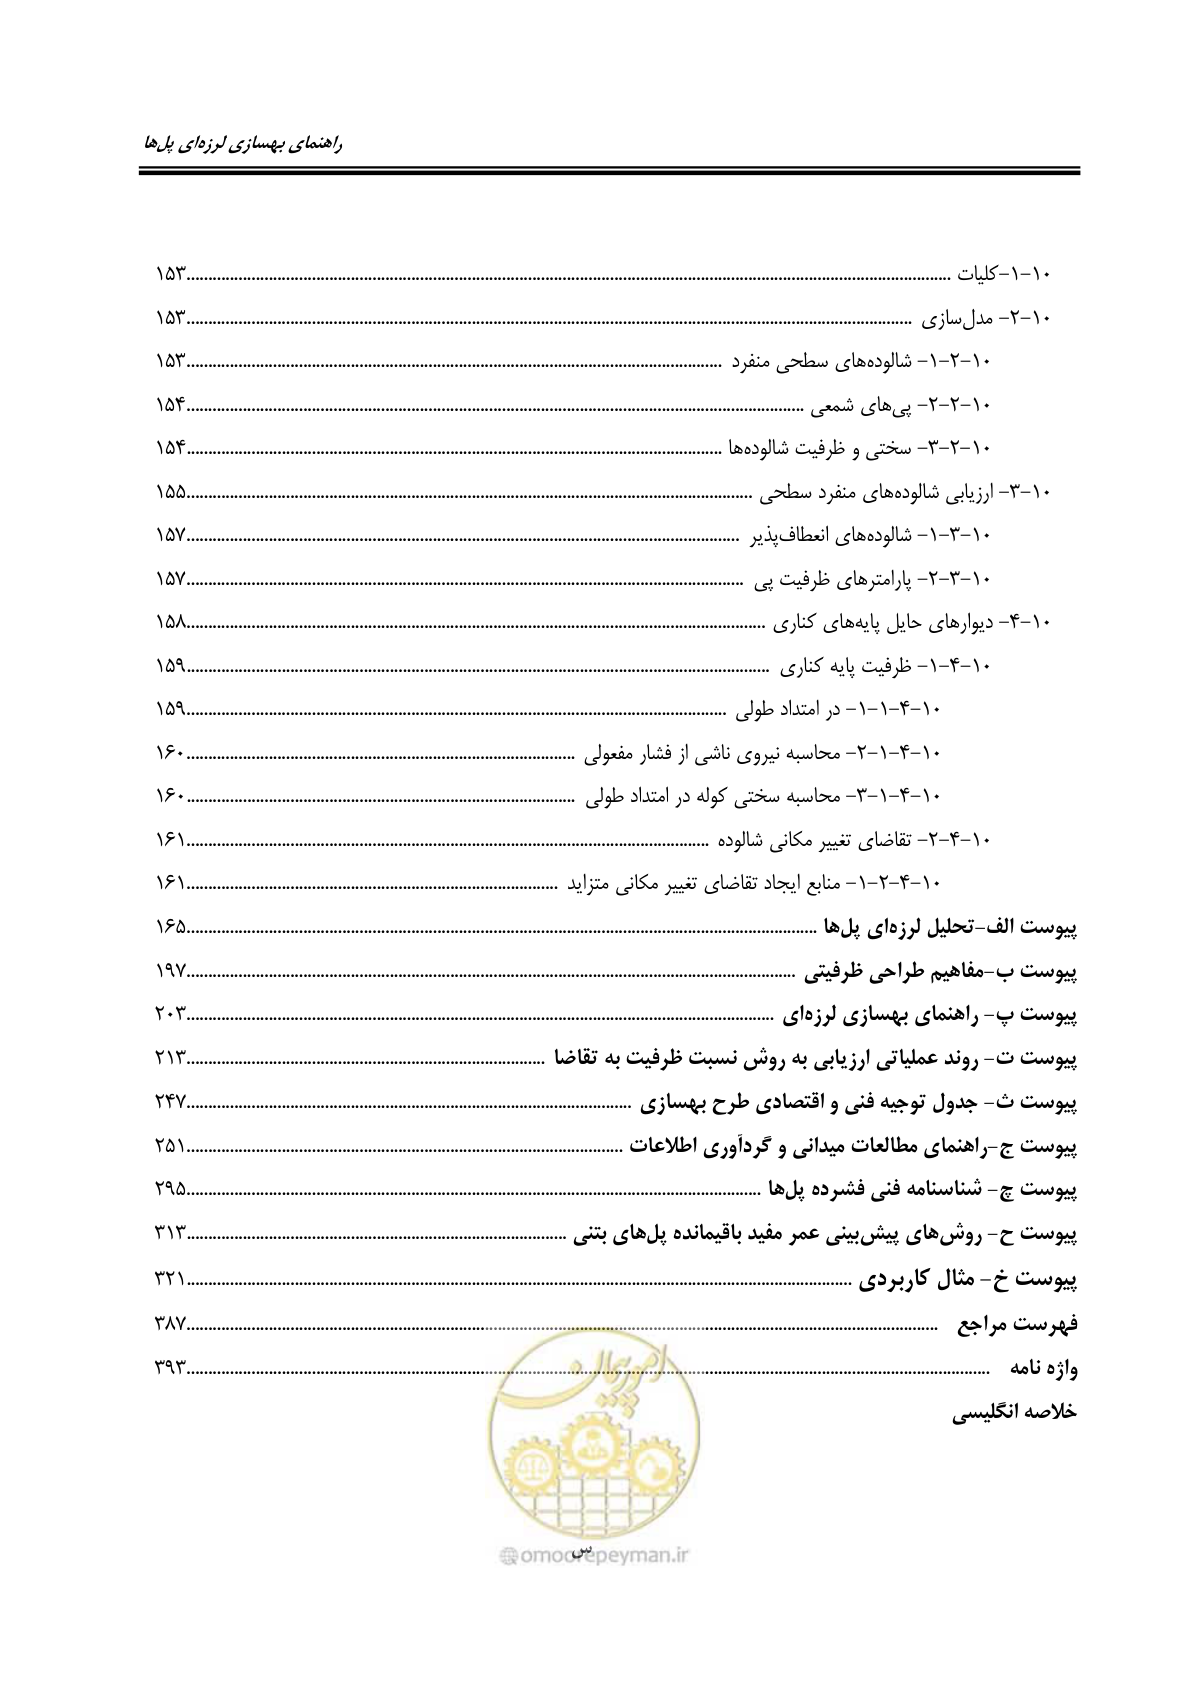 راهنمای بهسازی لرزه‌ای پل‌ها
۱۰-۱-کلیات ........ ۱۵۳
۱۰-۲- مدل‌سازی ........ ۱۵۳
۱۰-۲-۱- شالوده‌های سطحی منفرد ........ ۱۵۳
۱۰-۲-۲- پی‌های شمعی ........ ۱۵۴
۱۰-۲-۳- سختی و ظرفیت شالوده‌ها ........ ۱۵۴
۱۰-۳- ارزیابی شالوده‌های منفرد سطحی ........ ۱۵۵
۱۰-۳-۱- شالوده‌های انعطاف‌پذیر ........ ۱۵۷
۱۰-۳-۲- پارامترهای ظرفیت پی ........ ۱۵۷
۱۰-۴- دیوارهای حایل پایه‌های کناری ........ ۱۵۸
۱۰-۴-۱- ظرفیت پایه کناری ........ ۱۵۹
۱۰-۴-۱-۱- در امتداد طولی ........ ۱۵۹
۱۰-۴-۱-۲- محاسبه نیروی ناشی از فشار مفعولی ........ ۱۶۰
۱۰-۴-۱-۳- محاسبه سختی کوله در امتداد طولی ........ ۱۶۰
۱۰-۴-۲- تقاضای تغییر مکانی شالوده ........ ۱۶۱
۱۰-۴-۲-۱- منابع ایجاد تقاضای تغییر مکانی متزاید ........ ۱۶۱
پیوست الف-تحلیل لرزه‌ای پل‌ها ........ ۱۶۵
پیوست ب-مفاهیم طراحی ظرفیتی ........ ۱۹۷
پیوست پ- راهنمای بهسازی لرزه‌ای ........ ۲۰۳
پیوست ت- روند عملیاتی ارزیابی به روش نسبت ظرفیت به تقاضا ........ ۲۱۳
پیوست ث- جدول توجیه فنی و اقتصادی طرح بهسازی ........ ۲۴۷
پیوست ج-راهنمای مطالعات میدانی و گردآوری اطلاعات ........ ۲۵۱
پیوست چ- شناسنامه فنی فشرده پل‌ها ........ ۲۹۵
پیوست ح- روش‌های پیش‌بینی عمر مفید باقیمانده پل‌های بتنی ........ ۳۱۳
پیوست خ- مثال کاربردی ........ ۳۲۱
فهرست مراجع ........ ۳۸۷
واژه نامه ........ ۳۹۳
خلاصه انگلیسی
امور پیمان
س
omoorepeyman.ir